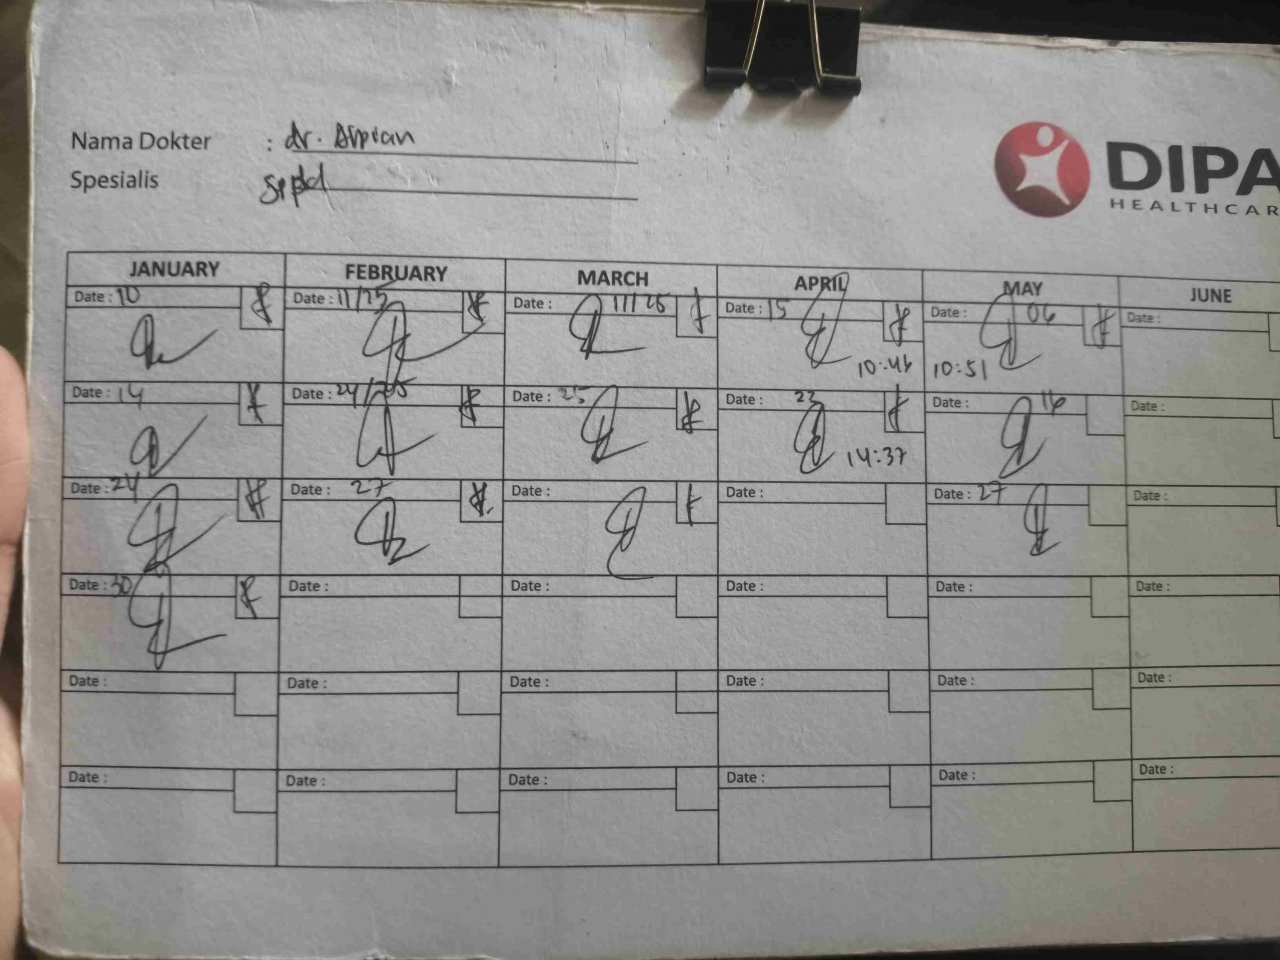 Nama Dokter : dr. Alpian
Spesialis
DIPA
HEALTHCAR
JANUARY FEBRUARY MARCH APRIL MAY JUNE
Date : 10 Date : 11/25 Date : 11/25 Date : 15 Date : 06 Date :
10:46 10:51
Date : 14 Date : 24/205 Date : 25 Date : 23 Date : 16 Date :
14:37
Date : 24 Date : 27 Date : Date : Date : 27 Date :
Date : 30 Date : Date : Date : Date : Date :
Date : Date : Date : Date : Date : Date :
Date : Date : Date : Date : Date : Date :